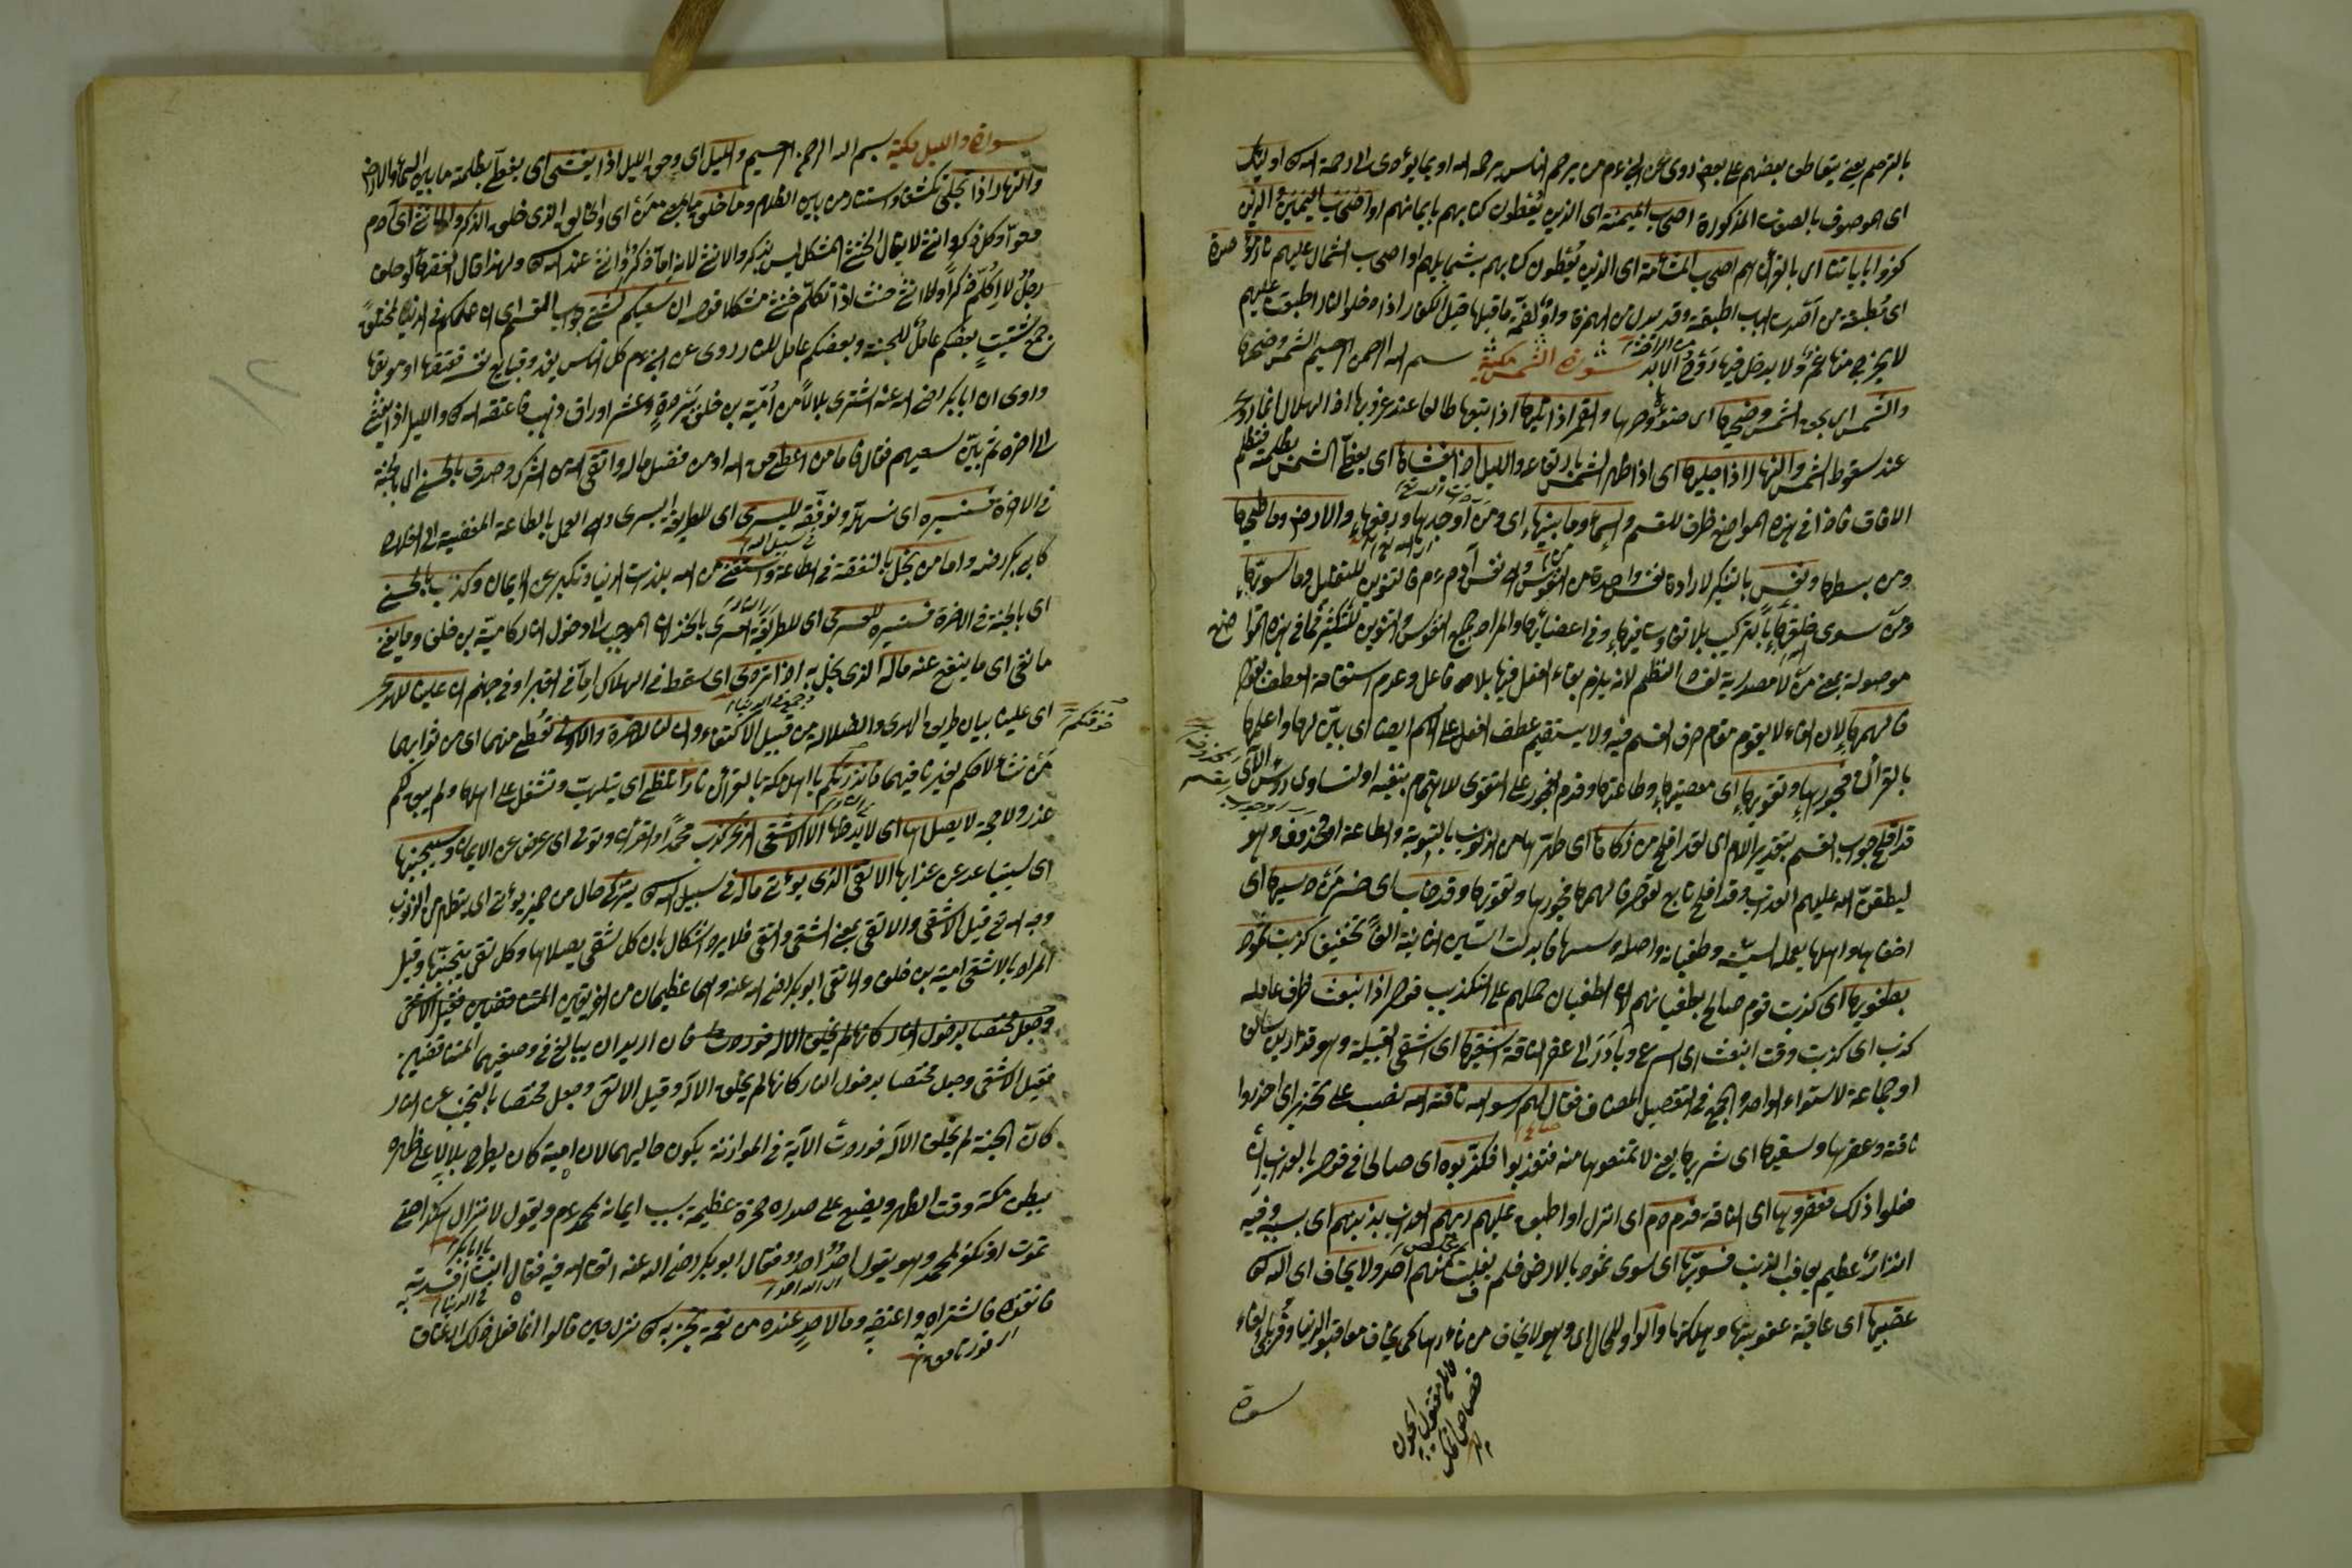 بالترحم يعني يتعاطى بعضهم على بعض روى عن النبي عم من يرحم الناس يرحمه الله او بما يؤدى الى رحمة الله تعالى اولئك
اى الموصوف بالصفة المذكورة اصحاب الميمنة اى الذين يُعْطَون كتابهم بايمانهم او اصحاب اليمين والذين
كفروا باياتنا اى بالقرآن هم اصحاب المشأمة اى الذين يُعْطَون كتابهم بشمايلهم او اصحاب الشمال عليهم نار مؤصدة
اى مُطبقة من آصدت الباب اطبقته وقد يبدل من الهمزة واوٌ لضمّة ما قبلها قيل الكفار اذا دخلوا النار اطبقت عليهم
لا يخرج منها غمّ ولا يدخل فيها رَوحٌ الى الابد سورة الشمس مكية بسم الله الرحمن الرحيم والشمس وضحيها
والشمس اى بحق الشمس وضحيها اى ضوئها وحرها والقمر اذا تليها اذا تبعها طالعا عند غروبها اذ الهلال انما يرى
عند سقوط الشمس والنهار اذا جليها اى اذا اظهر الشمس بارتفاعه والليل اذا يغشاها اى يغطى الشمس بظلمته فتظلم
الآفاق فاذا في هذه المواضع ظرف للقسم والسماء وما بنيها اى ومن اوجدها ورفعها والارض وما طحيها
ومن بسطها ونفس بالتنكير لارادة نفس واحدة من النفوس وهى نفس آدم عم فالتنوين للتقليل وما سويها
ومن سوى خلقها بالتركيب بلا تفاوت فيها وفى اعضائها والمراد جميع النفوس والتنوين للتكثير فما في هذه المواضع
موصولة بمعنى من لا مصدرية لفساد النظم لانه يلزم بقاء الفعل فيها بلا فاعل وعدم استقامة العطف بقوله
فالهمها لان الفاء لا يقوم مقام حرف القسم فيه ولا يستقيم عطف الفعل على الاسم ايضا اى بيّن لها واعلمها
بالقرآن فجورها وتقويها اى معصيتها وطاعتها وقدم الفجور على التقوى للاهتمام بنفيه او لتساوى رؤس الآى
قد افلح جواب القسم بتقدير اللام اى لقد افلح من زكاها اى طهّرها من الذنوب بالتوبة والطاعة او محذوف وهو
ليطبقنّ الله عليهم العذاب وقد افلح تابع لقوله فالهمها فجورها وتقويها وقد خاب اى خسر من دسيها اى
اخفاها واهلها بعمله السيئة وطغيانه واصله دسسها فابدلت السين الثانية الفًا تخفيفا كذبت ثمود
بطغويها اى كذبت قوم صالح بطغيانهم اى الطغيان حملهم على التكذيب قوله اذ انبعث ظرف عامله
كذب اى كذبت وقت انبعث اى اسرع وبادر الى عقر الناقة اشقيها اى اشقى القبيلة وهو قدار بن سالف
او جماعة لاستواء الواحد والجمع فى التفضيل المضاف فقال لهم رسول الله ناقة الله نصب على تحذير اى احذروا
ناقة وعقرها وسقيها اى شربها يعنى لا تمنعوها منه فتعذبوا فكذبوه اى صالحا في قوله بالعذاب ان
فعلوا ذلك فعقروها اى الناقة فدمدم اى انزل او اطبق عليهم ربهم العذاب بذنبهم اى بسببه وفيه
انذار عظيم بعاقبة الذنب فسويها اى سوى ثمود بالارض فلم يفلت منهم احد ولا يخاف اى الله تعالى
عقبيها اى عاقبة عقوبتها وهلكتها والواو للحال اى وهو لا يخاف من اهلاكها كما يخاف معاقبو الدنيا وقرئ بالفاء
سورة
سورة والليل مكية بسم الله الرحمن الرحيم والليل اى وحق الليل اذا يغشى اى يغطى بظلمته ما بين السماء والارض
والنهار اذا تجلى تكشف واستنار من بين الظلام وما خلق ما بمعنى من اى والخالق الذى خلق الذكر والانثى اى آدم
وحوّا وكل ذكر وانثى لا يقال الخنثى المشكل ليس بذكر ولا انثى لانه اما ذكر او انثى عند الله تعالى ولهذا قال الفقهاء لو حلف
رجلٌ لا اكلّم ذكرًا ولا انثى حنث اذا تكلّم خنثى مشكلا قوله ان سعيكم لشتى جواب القسم اى ان عملكم فى الدنيا لمختلف
جمع شتيت بعضكم عامل للجنة وبعضكم عامل للنار روى عن النبى عم كل الناس يغدو فبايع نفسه فمعتقها او موبقها
وروى ان ابا بكر رضى الله عنه اشترى بلالًا من اُميّة بن خلف ببردة وعشر اوراق ذهب فاعتقه لله تعالى والليل اذا يغشى
الى اخره ثم بيّن سعيهم فقال فاما من اعطى حق الله او من فضل ماله واتقى الله من الشرك وصدق بالحسنى اى بالجنة
فى الاخرة فسنيسره اى نسهله ونوفقه لليسرى اى للطريقة اليسرى وهى العمل بالطاعة المفضية الى الجنة
كابى بكر رضه واما من بخل بالنفقة فى الطاعة واستغنى من الله بلذات الدنيا وتكبر عن الايمان وكذب بالحسنى
اى بالجنة فى الاخرة فسنيسره للعسرى اى للطريقة العسرى بالخذلان الموجب الى دخول النار كامية بن خلف وما يغنى
ما نفى اى ما ينفع عنه ماله الذى بخل به اذا تردى اى سقط فى الهلاك اما فى القبر او فى جهنم ان علينا للهدى
اى علينا بيان طريق الهدى والضلالة من قبيل الاكتفاء وان لنا للاخرة والاولى نُعطى منهما اى من ثوابهما
من نشاء لا حكم لغيرنا فيهما فانذرتكم يا اهل مكة بالقرآن نارا تلظى اى يتلهب وتشتعل على اهلها ولم يبق لكم
عذر ولا حجة لا يصليها اى لا يدخلها الا الاشقى الذى كذب محمدًا والقرآن وتولى اى اعرض عن الايمان وسيجنبها
اى سيتباعد عن عذابها الاتقى الذى يؤتى ماله فى سبيل الله تعالى يتزكى حال من ضمير يؤتى اى يتطهر من الذنوب
وجه الله تع قيل الاشقى والاتقى بمعنى الشقى والتقى فلا يرد اشكال بان كل شقى يصلاها وكل تقى يتجنبها وقيل
المراد بالاشقى امية بن خلف والاتقى ابو بكر رضى الله عنه وهما عظيمان من الفريقين المتناقضين فقيل الاشقى
وجعل مختصا بدخول النار كانها لم يخلق الا له فوردت فان اريد ان يبالغ فى وصفيهما المتناقضين
فقيل الاشقى وجعل مختصا بدخول النار كانها لم يخلق الا له وقيل الاتقى وجعل مختصا بالتجنب عن النار
كانّ الجنة لم يخلق الا له فوردت الآية فى الموازنة يكون حاليهما لان امية كان يطرح بلالا على ظهره
ببطن مكة وقت الظهر ويضع على صدره صخرة عظيمة بسبب ايمانه لمحمد عم ويقول لا تزال هكذا حتى
تموت او تكفر بمحمد وهو يقول احدٌ احدٌ فقال ابو بكر رضى الله عنه اتق الله فيه فقال انت افسدته
فانقذه فاشتراه واعتقه وما لاحد عنده من نعمة تجزى كان نزل حين قالوا انما فعل ذلك الاعتاق